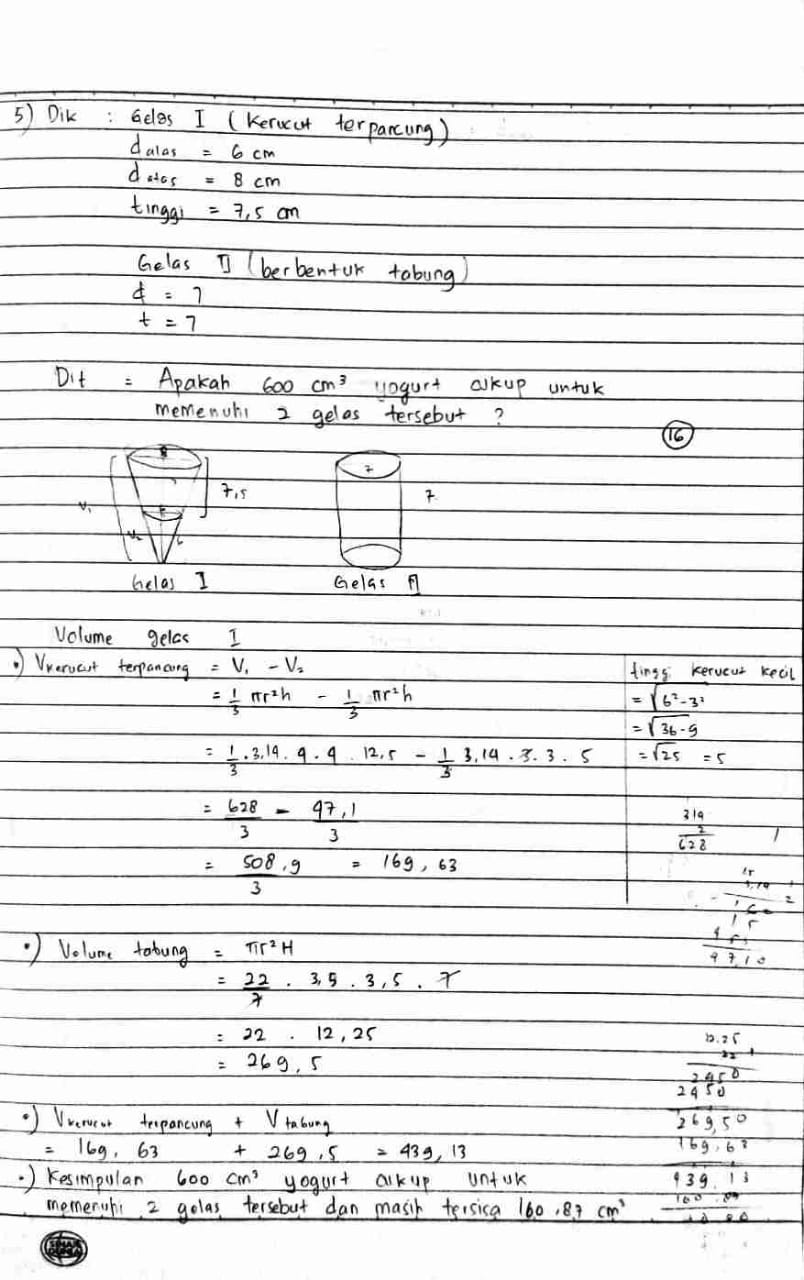 5) Dik : Gelas I (kerucut terpancung)
d alas = 6 cm
d atas = 8 cm
tinggi = 7,5 cm
Gelas II (berbentuk tabung)
d = 7
t = 7
Dit = Apakah 600 cm³ yogurt cukup untuk
memenuhi 2 gelas tersebut ?
16
8
7,5
V₁
V₂
6
7
7
Gelas I
Gelas II
Volume gelas I
•) Vkerucut terpancung = V₁ - V₂
= 1/3 πr²h - 1/3 πr²h
= 1/3 . 3,14 . 4 . 4 . 12,5 - 1/3 3,14 . 3 . 3 . 5
= 628/3 - 97,1/3
= 508,9/3 = 169,63
tinggi kerucut kecil
= √6²-3²
= √36-9
= √25 = 5
314
2
628
•) Volume tabung = πr²H
= 22/7 . 3,5 . 3,5 . 7
= 22 . 12,25
= 269,5
12.25
22
2450
2450
269,50
169,63
439,13
•) Vkerucut trepancung + V tabung
= 169,63 + 269,5 = 439,13
•) Kesimpulan 600 cm³ yogurt cukup untuk
memenuhi 2 gelas tersebut dan masih tersisa 160,87 cm³